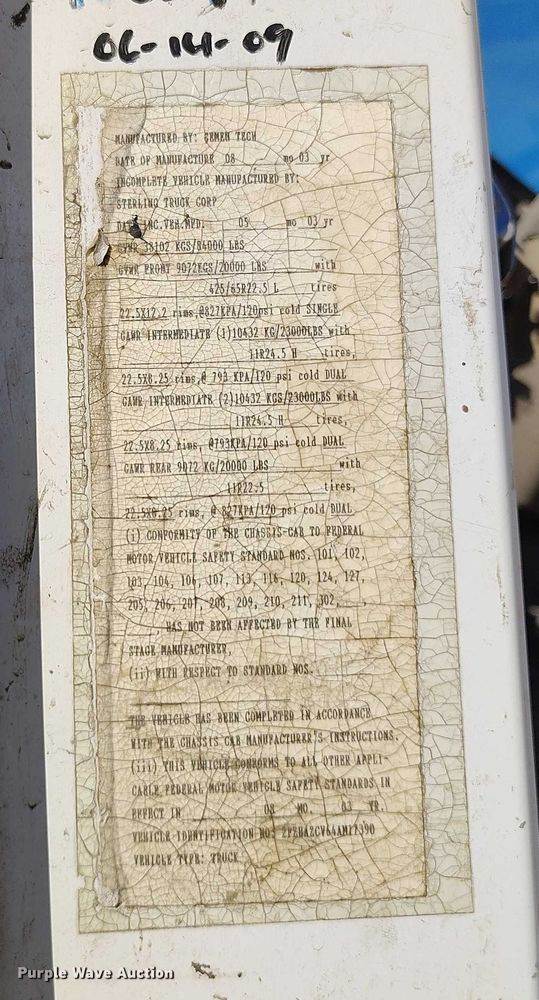 06-14-09
MANUFACTURED BY: CEMEN TECH
DATE OF MANUFACTURE 08 mo 03 yr
INCOMPLETE VEHICLE MANUFACTURED BY:
STERLING TRUCK CORP
DATE INC.VEH.MFD. 05 mo 03 yr
GVWR 38102 KGS/84000 LBS
GVWR FRONT 9072KGS/20000 LBS with
425/65R22.5 L tires
22.5X12.2 rims,@827KPA/120psi cold SINGLE
GAWR INTERMEDIATE (1)10432 KG/23000LBS with
11R24.5 H tires,
22.5X8.25 rims,@ 793 KPA/120 psi cold DUAL
GAWR INTERMEDIATE (2)10432 KGS/23000LBS with
11R24.5 H tires,
22.5X8.25 rims, @793KPA/120 psi cold DUAL
GAWR REAR 9072 KG/20000 LBS with
11R22.5 tires,
22.5X8.25 rims, @ 827KPA/120 psi cold DUAL
(i) CONFORMITY OF THE CHASSIS-CAB TO FEDERAL
MOTOR VEHICLE SAFETY STANDARD NOS. 101, 102,
103, 104, 106, 107, 113, 116, 120, 124, 127,
205, 206, 207, 208, 209, 210, 211, 302, ,
HAS NOT BEEN AFFECTED BY THE FINAL
STAGE MANUFACTURER,
(ii) WITH RESPECT TO STANDARD NOS.
THE VEHICLE HAS BEEN COMPLETED IN ACCORDANCE
WITH THE CHASSIS CAB MANUFACTURER'S INSTRUCTIONS.
(iii) THIS VEHICLE CONFORMS TO ALL OTHER APPLI-
CABLE FEDERAL MOTOR VEHICLE SAFETY STANDARDS IN
EFFECT IN 08 MO. 03 YR.
VEHICLE IDENTIFICATION NO: 2FZHAZCV64AM17390
VEHICLE TYPE: TRUCK
Purple Wave Auction